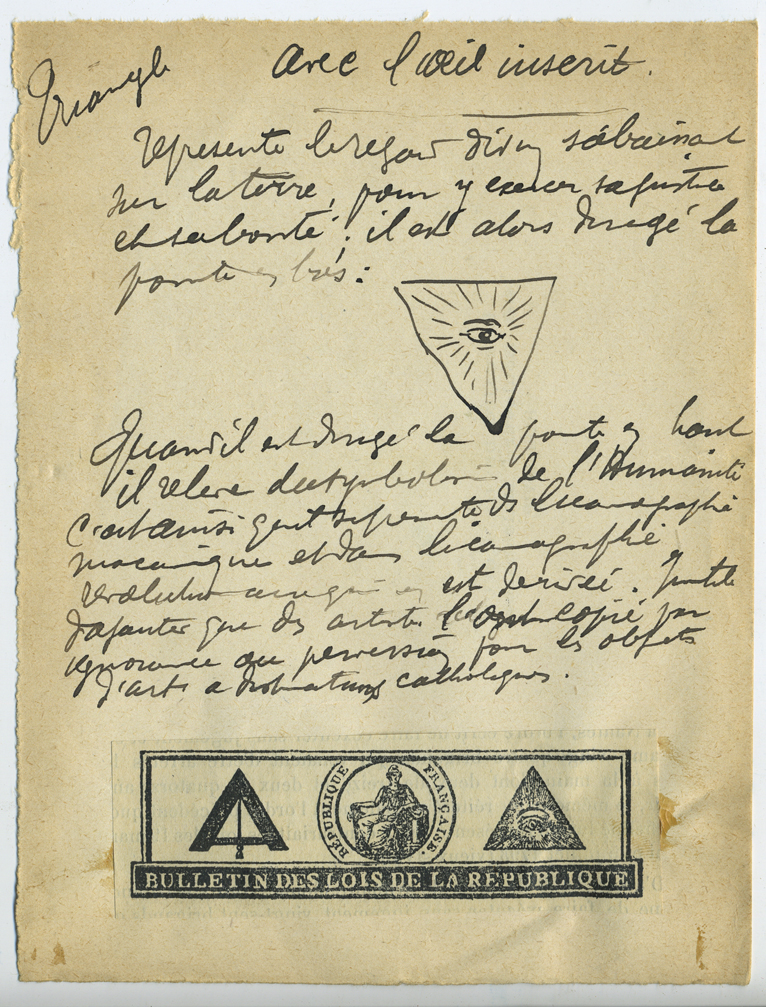 Triangle
avec l'œil inscrit.
représente le regard divin s'abaissant
sur la terre, pour y exercer sa justice
et sa bonté ; il est alors dirigé la
pointe en bas :
Quand il est dirigé la pointe en haut
il relève du symbolisme de l'Humanité
c'est ainsi qu'il représente ds l'iconographie
maçonnique et dans l'iconographie
révolutionnaire qui en est dérivée. Inutile
d'ajouter que des artistes l'ont copié par
ignorance ou perversité pour les objets
d'art à destination catholiques.
RÉPUBLIQUE FRANÇAISE.
BULLETIN DES LOIS DE LA RÉPUBLIQUE